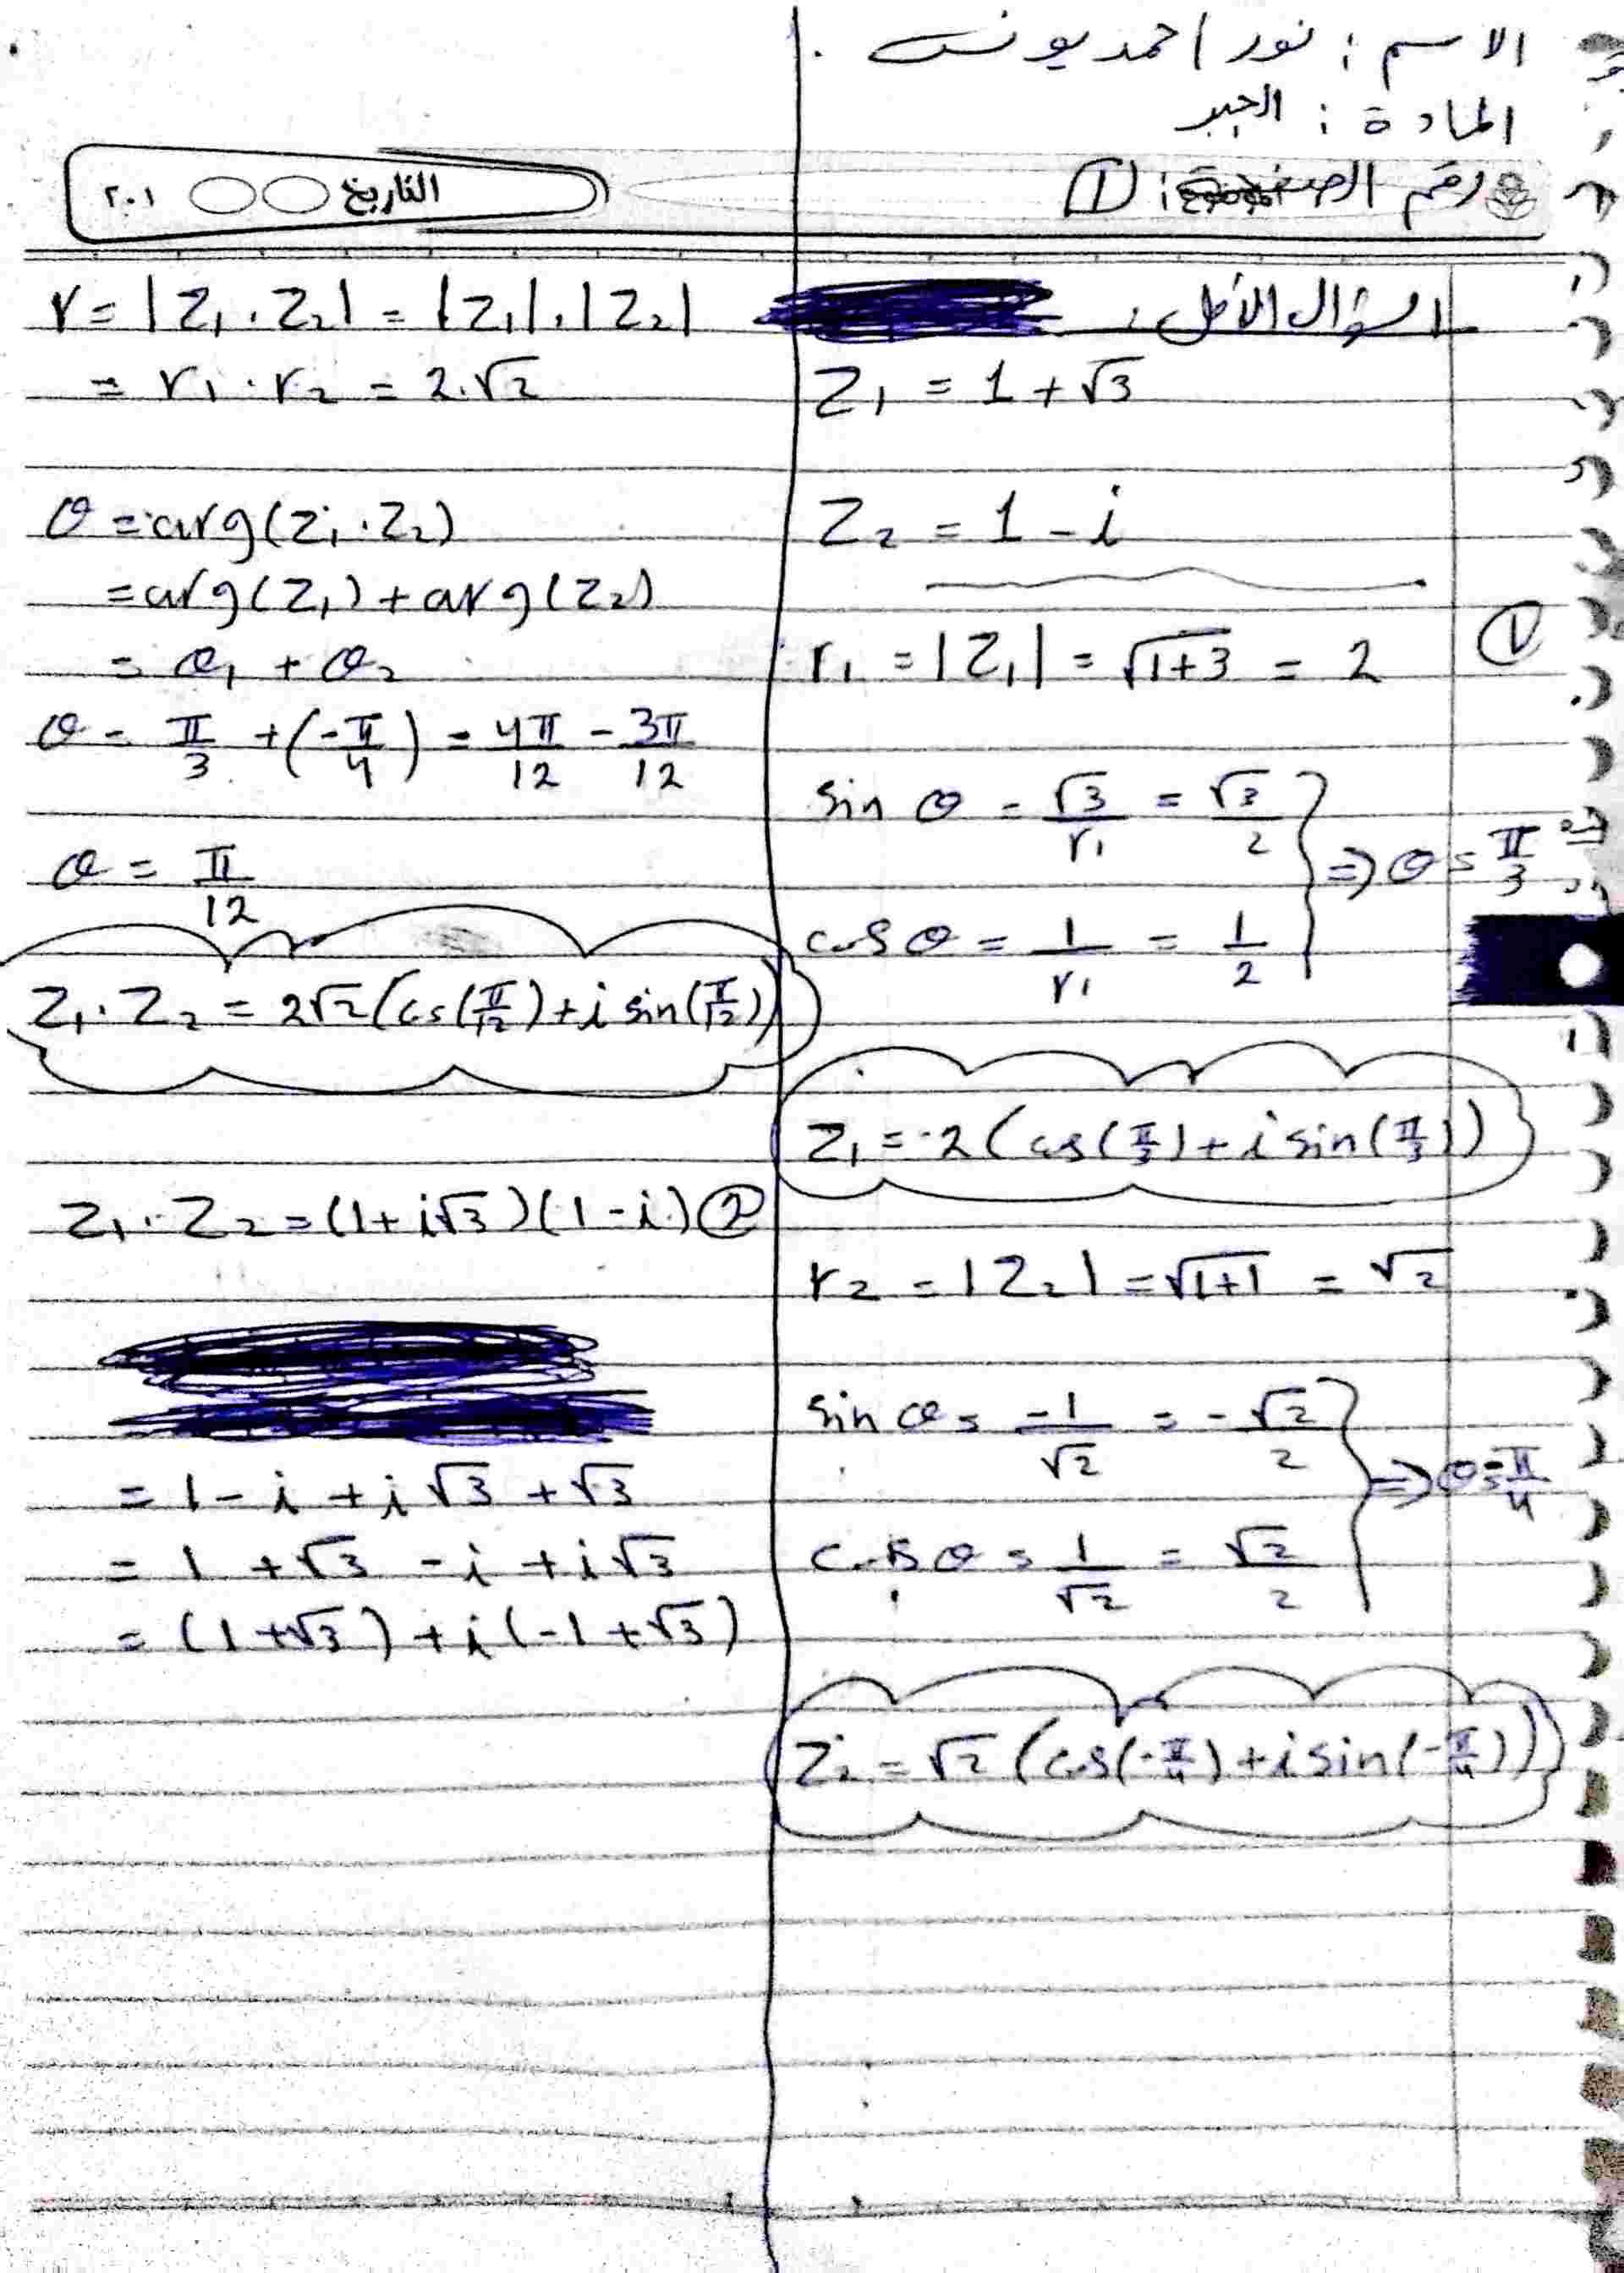 الاسم : نور احمد يونس .
المادة : الجبر
رقم الصفحة : ①
التاريخ ٢٠١
السؤال الأول :
Z₁ = 1 + √3
Z₂ = 1 - i
①
r₁ = |Z₁| = √(1+3) = 2
sin θ = √3/r₁ = √3/2
cos θ = 1/r₁ = 1/2
⇒ θ = π/3
Z₁ = 2 (cos(π/3) + i sin(π/3))
r₂ = |Z₂| = √(1+1) = √2
sin θ = -1/√2 = -√2/2
cos θ = 1/√2 = √2/2
⇒ θ = -π/4
Z₂ = √2 (cos(-π/4) + i sin(-π/4))
r = |Z₁ . Z₂| = |Z₁| . |Z₂|
= r₁ . r₂ = 2.√2
θ = arg(Z₁ . Z₂)
= arg(Z₁) + arg(Z₂)
= θ₁ + θ₂
θ = π/3 + (-π/4) = 4π/12 - 3π/12
θ = π/12
Z₁ . Z₂ = 2√2 (cos(π/12) + i sin(π/12))
Z₁ . Z₂ = (1 + i√3)(1 - i) ②
= 1 - i + i√3 + √3
= 1 + √3 - i + i√3
= (1 + √3) + i(-1 + √3)